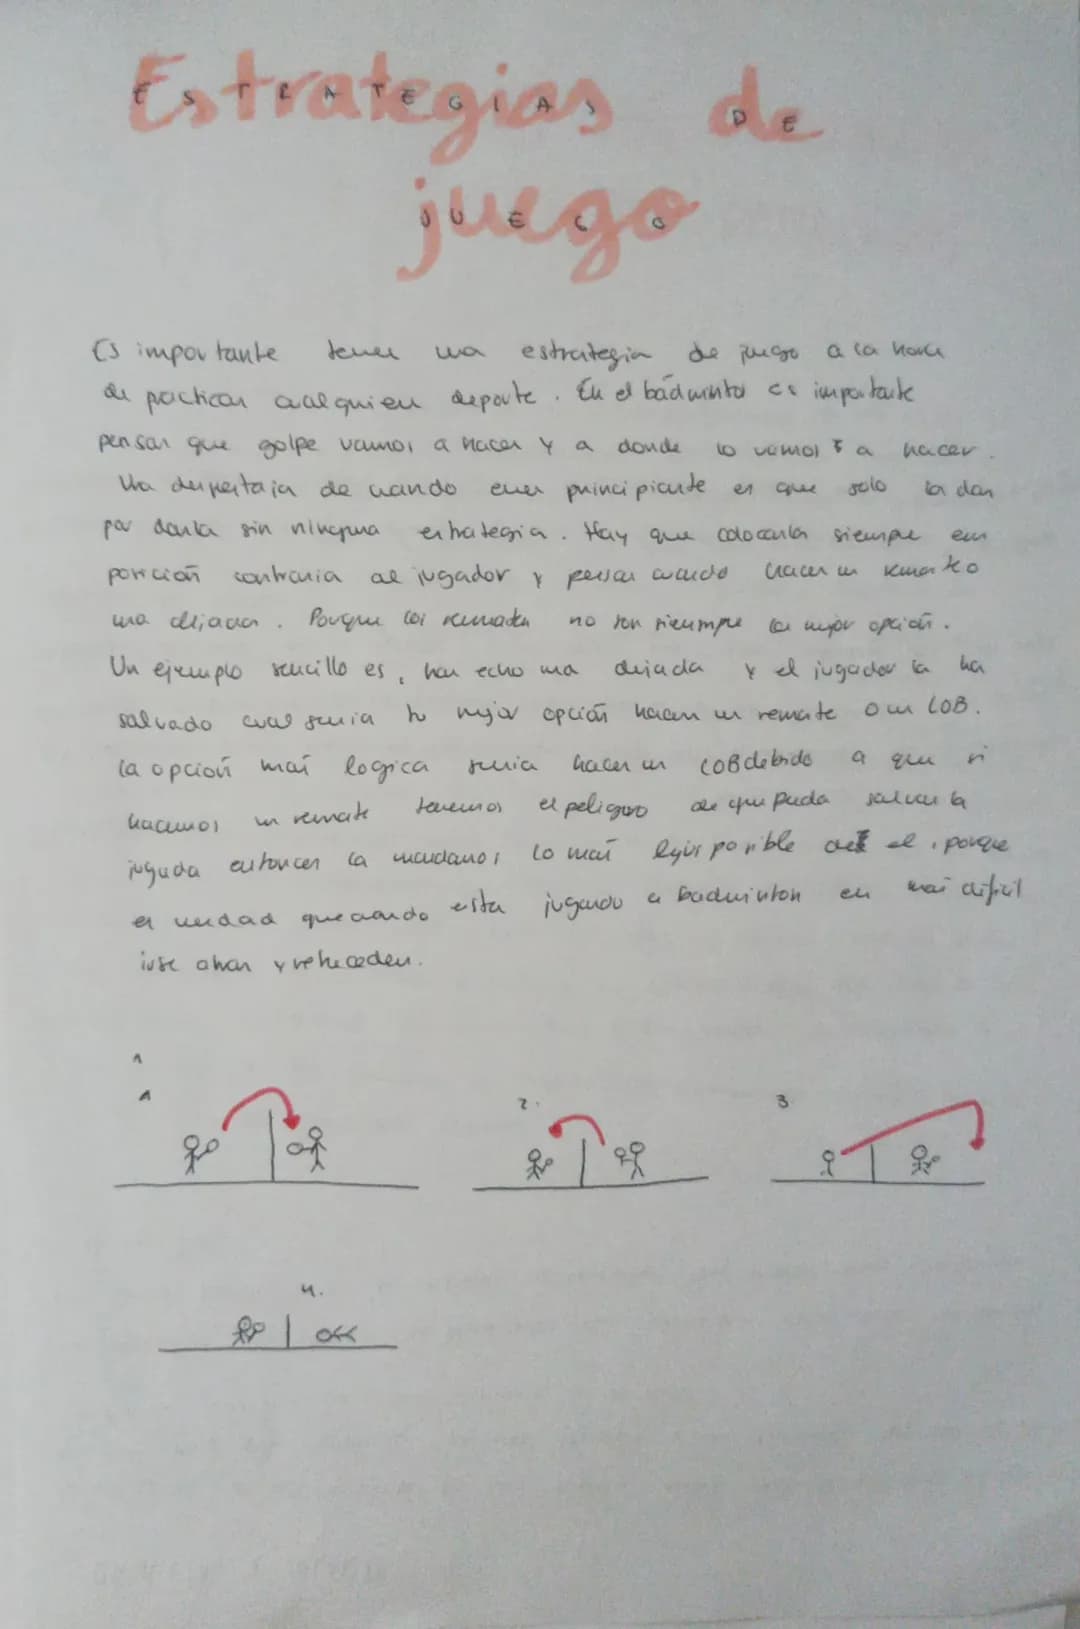 Estrategias de
ESTRATEGIAS DE
juego
JUEGO
Es importante tener una estrategia de juego a la hora
de practicar cualquier deporte. En el bádminton es importante
pensar que golpe vamos a hacer y a donde lo vamos a hacer.
Una desventaja de cuando eres principiante es que solo la das
por darla sin ninguna estrategia. Hay que colocarla siempre en
posición contraria al jugador y pensar cuando hacer un remate o
una dejada. Porque los remates no son siempre la mejor opción.
Un ejemplo sencillo es, has echo una dejada y el jugador la ha
salvado cual seria tu mejor opción hacer un remate o un LOB.
La opción mas logica seria hacer un LOB debido a que si
hacemos un remate tenemos el peligro de que pueda salvar la
jugada entonces la mandamos lo mas lejos posible de el, porque
es verdad que cuando estas jugando a badminton es mas dificil
irse atras y retroceder.
1
1
2.
3
4.